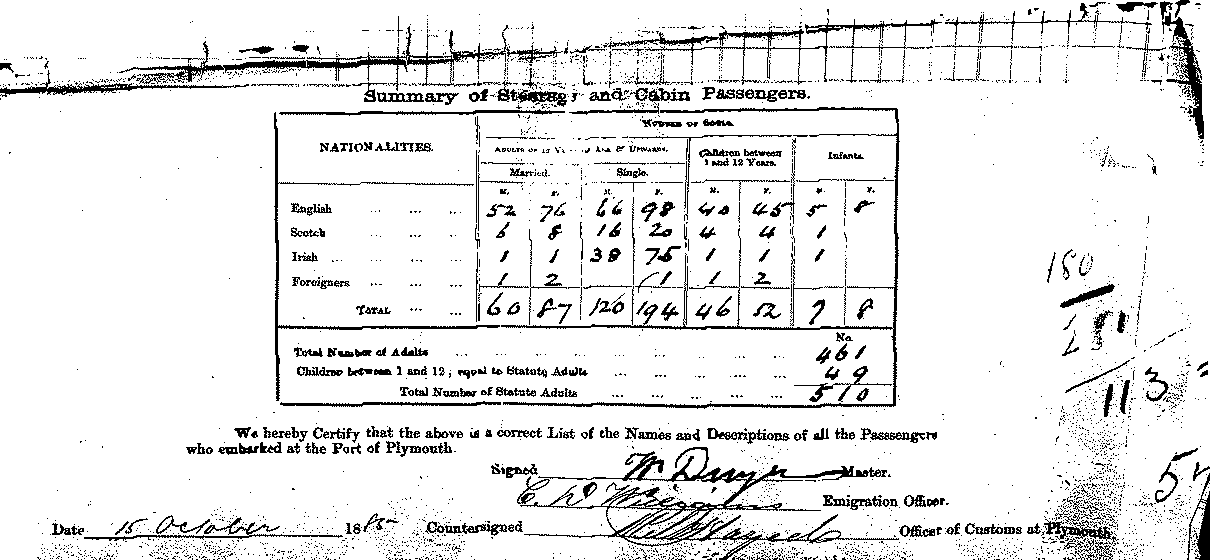 Summary of Steerage and Cabin Passengers.
NATIONALITIES.
NUMBER OF SOULS.
ADULTS OF 12 YEARS OF AGE & UPWARDS.
Children between 1 and 12 Years.
Infants.
Married. Single.
M. F. M. F. M. F. M. F.
English ... ... ... 52 76 66 98 40 45 5 8
Scotch ... ... ... 6 8 16 20 4 4 1
Irish ... ... ... 1 1 38 75 1 1 1
Foreigners ... ... 1 2 1 1 2
TOTAL ... ... 60 87 120 194 46 52 7 8
No.
Total Number of Adults ... ... ... ... ... ... ... ... 461
Children between 1 and 12; equal to Statute Adults ... ... ... ... 49
Total Number of Statute Adults ... ... ... ... 510
180
113
We hereby Certify that the above is a correct List of the Names and Descriptions of all the Passsengers
who embarked at the Port of Plymouth.
Signed W Dwyer Master.
Emigration Officer.
Date 15 October 1885 Countersigned Officer of Customs at Plymouth